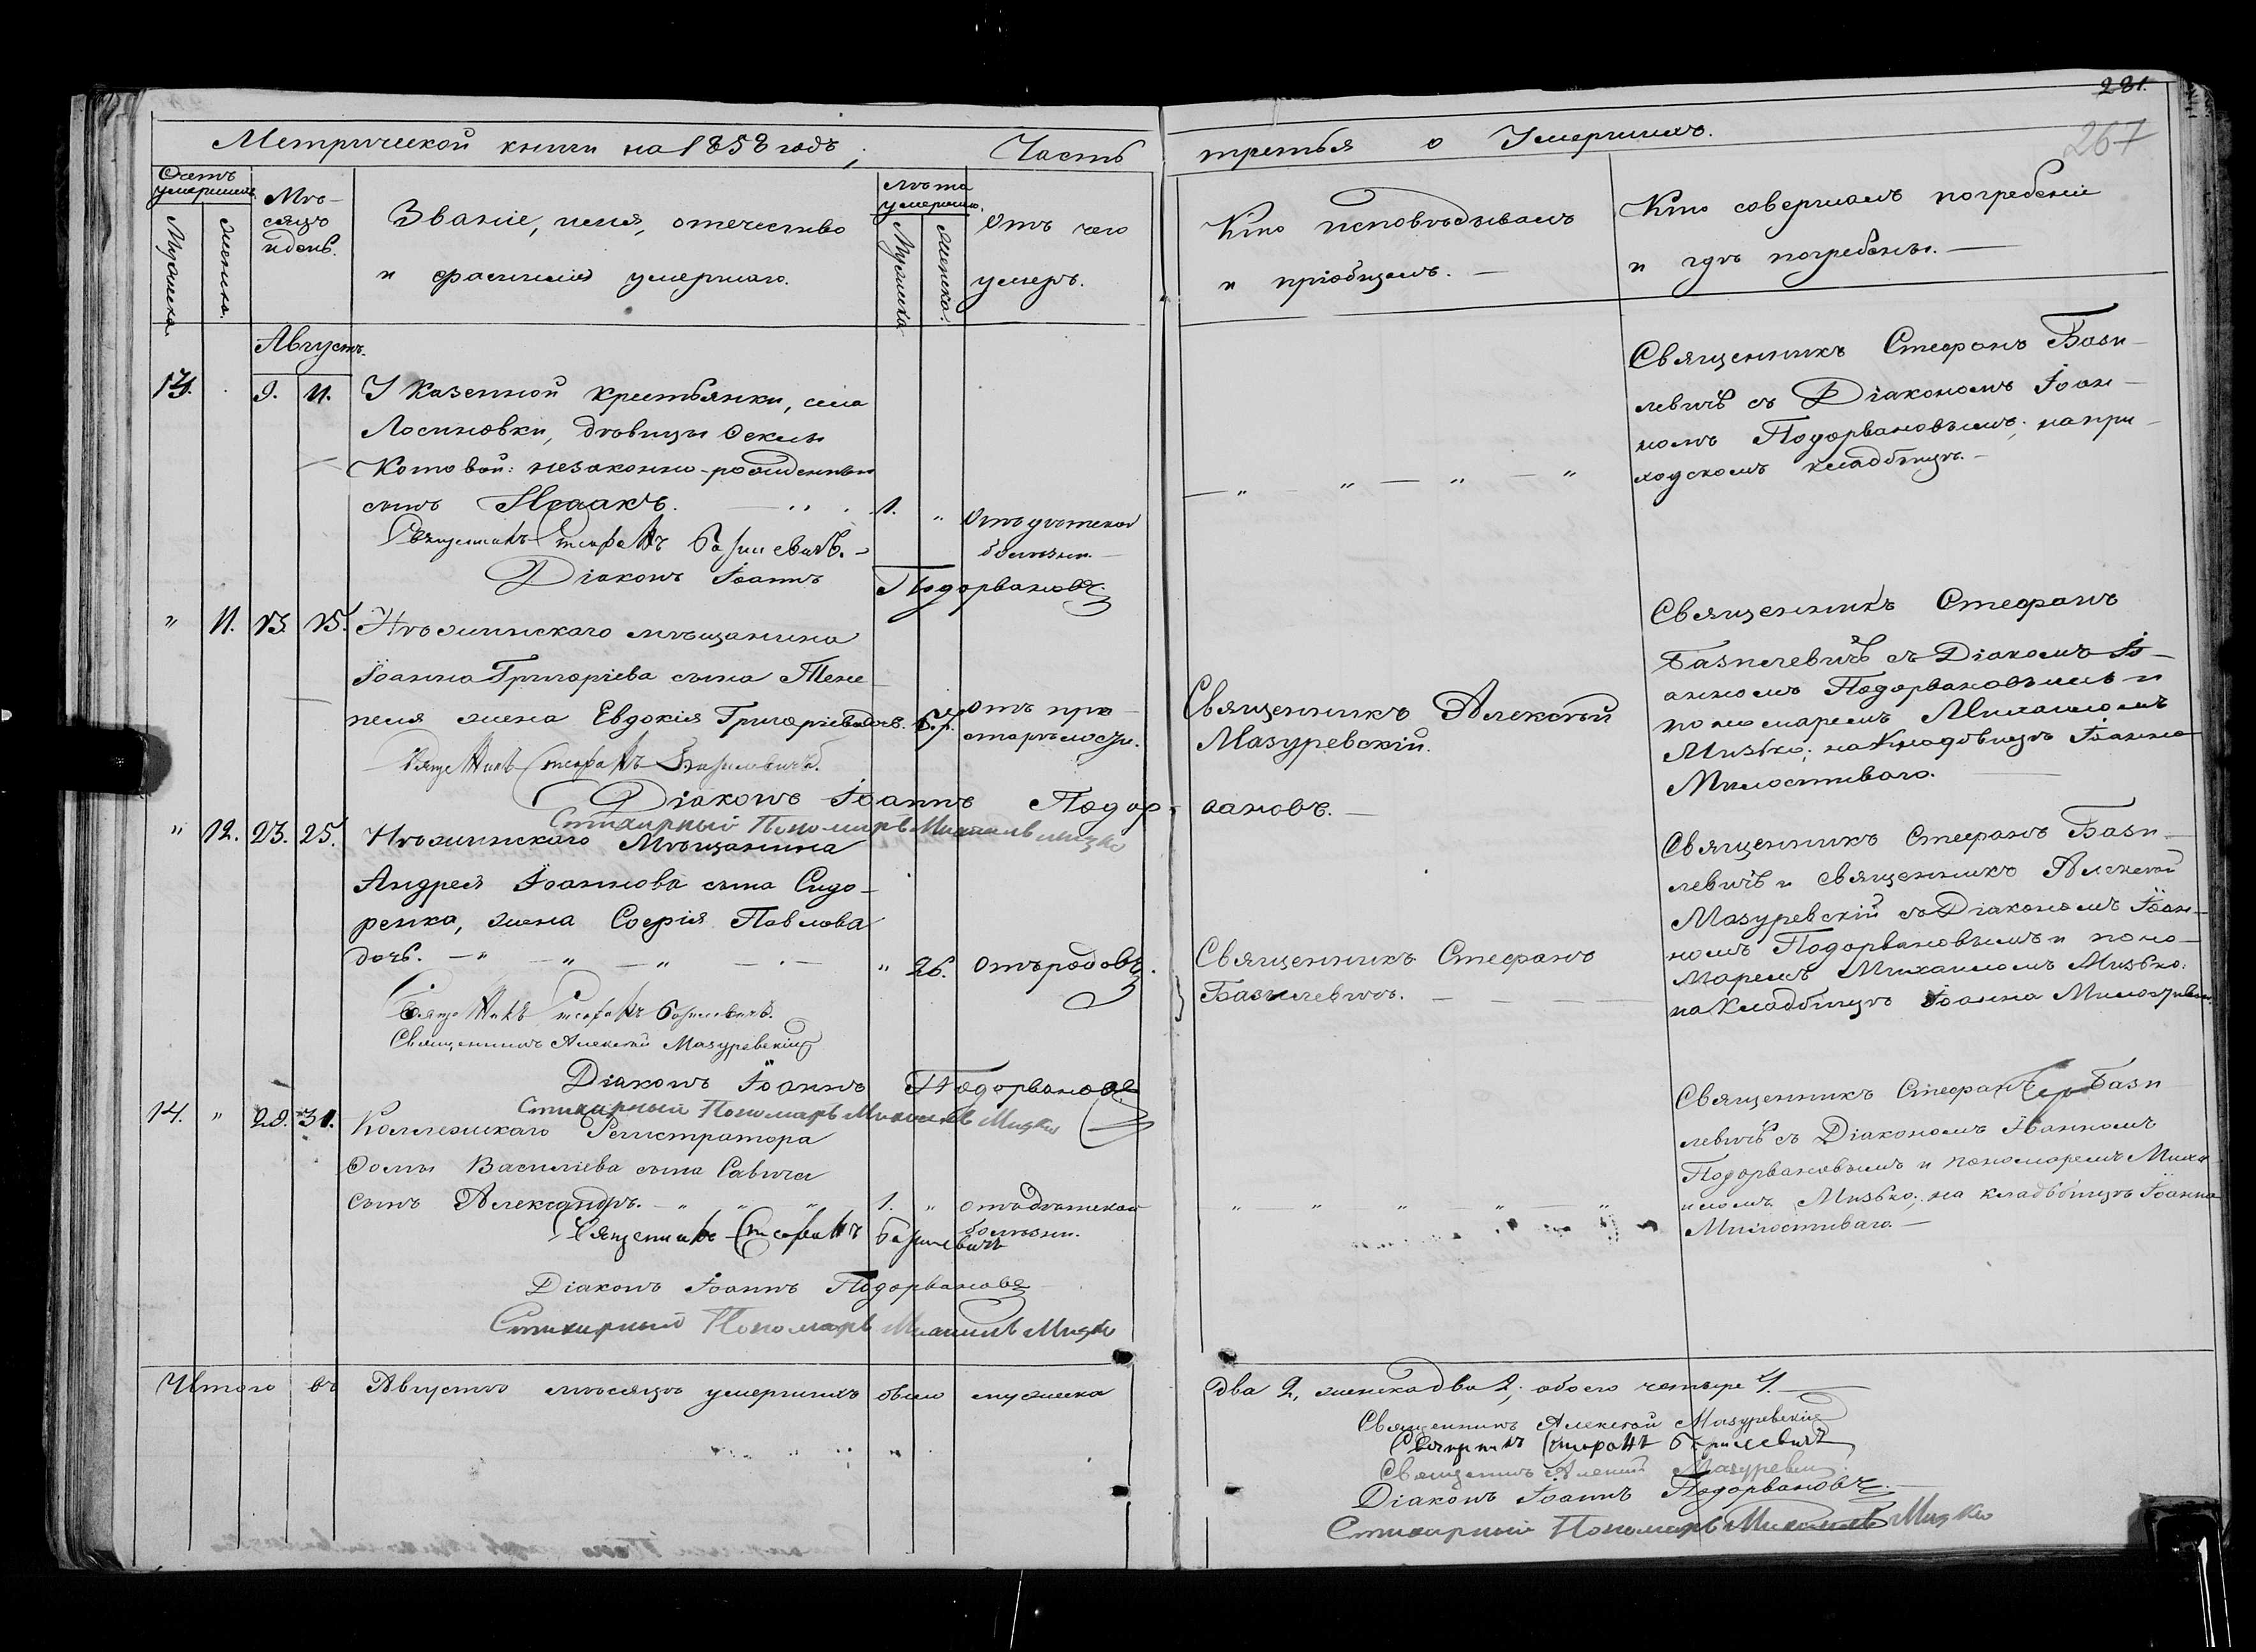 281.
267
Метрической книги на 1858 годъ, Часть
третья о Умершихъ.
Счетъ умершихъ.
Мужеска.
Женска.
Мѣ-
сяцъ
и день.
Званіе, имя, отечество
и фамилія умершаго.
Лѣта умершаго.
Мужеска
Женска.
Отъ чего
умеръ.
Кто исповѣдывалъ
и пріобщалъ. —
Кто совершалъ погребеніе
и гдѣ погребены. —
Августъ.
13. 9. 11. У казенной крестьянки, села
Лосиновки, дѣвицы Феклы
Котовой: незаконно-рожденный
сынъ Исаакъ. 1. " Отъ дѣтской
болѣзни. —
— " — " — " — "
Священникъ Стефанъ Бази-
левичъ съ Діакономъ Іоан-
номъ Подорвановымъ; на при-
ходскомъ кладбищѣ. —
Священникъ Стефанъ Базилевичъ. —
Діаконъ Іоаннъ Подорвановъ.
" 11. 13. 15. Нѣжинскаго мѣщанина
Іоанна Григоріева сына Теле-
пела жена Евдокія Григоріева дочь. 67. Отъ пре-
старѣлости.
Священникъ Алексѣй
Мазуревскій.
Священникъ Стефанъ
Базилевичъ съ Діакомъ Іо-
анномъ Подорвановымъ и
пономаремъ Михаиломъ
Мизько; на Кладбищѣ Іоанна
Милостиваго.
Священникъ Стефанъ Базилевичъ.
Діаконъ Іоаннъ Подорвановъ. —
Стихарный Пономарь Михаилъ Мизко
" 12. 23. 25. Нѣжинскаго Мѣщанина
Андрея Іоаннова сына Сидо-
ренка, жена Софія Павлова
дочь. — " — " — " — " 26. Отъ родовъ.
Священникъ Стефанъ
Базилевичъ. —
Священникъ Стефанъ Бази-
левичъ и священникъ Алексѣй
Мазуревскій съ Діакономъ Іоан-
номъ Подорвановымъ и поно-
маремъ Михаиломъ Мизько:
на Кладбищѣ Іоанна Милостиваго.
Священникъ Стефанъ Базилевичъ.
Священникъ Алексѣй Мазуревскій
Діаконъ Іоаннъ Подорвановъ
Стихарный Пономарь Михаилъ Мизко
14. " 29. 31. Коллежскаго Регистратора
Фомы Василіева сына Савича
сынъ Александръ. — " " " 1. " Отъ дѣтской
болѣзни.
" " " — " — "
Священникъ Стефанъ Бази-
левичъ съ Діакономъ Іоанномъ
Подорвановымъ и пономаремъ Миха-
иломъ Мизько; на кладбищѣ Іоанна
Милостиваго. —
Священникъ Стефанъ Базилевичъ
Діаконъ Іоаннъ Подорвановъ
Стихарный Пономарь Михаилъ Мизко
Итого въ Августѣ мѣсяцѣ умершихъ было мужеска
два 2, женска два 2; обоего четыре 4. —
Священникъ Алексѣй Мазуревскій
Священникъ Стефанъ Базилевичъ
Священникъ Алексѣй Мазуревскій
Діаконъ Іоаннъ Подорвановъ. —
Стихарный Пономарь Михаилъ Мизко